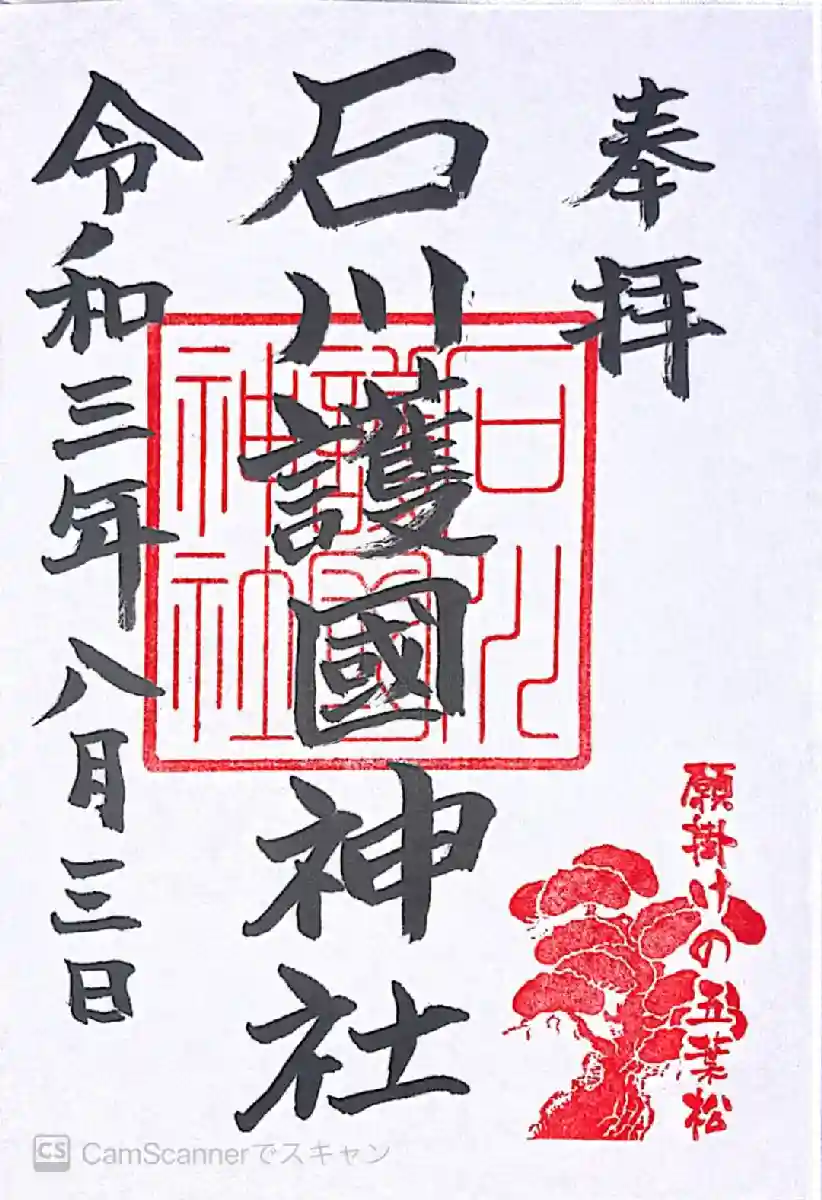 奉拝
石川護國神社
令和三年八月三日
石川
護國
神社
願掛けの五葉松
CS CamScannerでスキャン